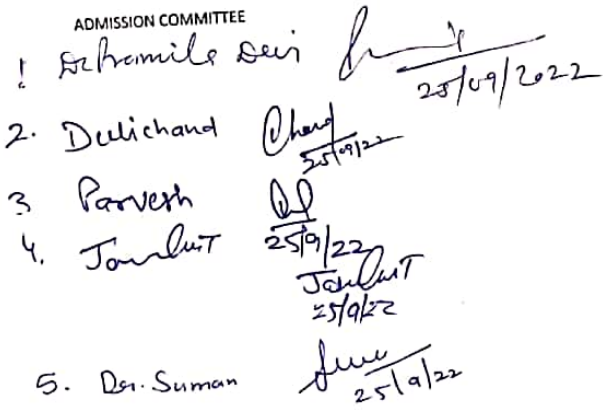 ADMISSION COMMITTEE
1 Dr Pramila Devi
25/09/2022
2. Dulichand Chand
25/09/22
3 Parvesh
25/9/22
4.
25/9/22
5. Dr. Suman Suman
25/9/22